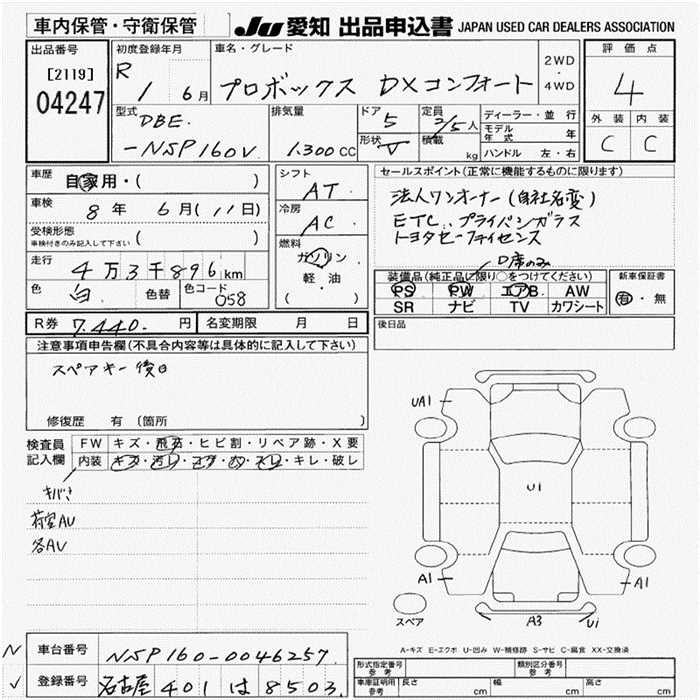 車内保管・守衛保管
JU 愛知 出品申込書 JAPAN USED CAR DEALERS ASSOCIATION
出品番号
[2119]
04247
初度登録年月
R 1 6月
車名・グレード
プロボックス DXコンフォート
2WD
・
4WD
評価点
4
外装 内装
C C
型式
DBE
-NSP160V
排気量
1.300cc
ドア 5
形状 V
定員 2/5人
積載 kg
ディーラー・並行
モデル年式 年
ハンドル 左・右
車歴 自家用・( )
車検 8年 6月(11日)
受検形態
車検付きのみ記入して下さい ( )
走行 4万3千896km
色 白 色替 色コード 058
シフト AT
冷房 AC
燃料
ガソリン
軽・油
( )
セールスポイント(正常に機能するものに限ります)
法人ワンオーナー(自社名変)
ETC、プライバシーガラス
トヨタセーフティセンス
D席のみ
装備品(純正品に限り○をつけてください)
PS PW エアB AW
SR ナビ TV カワシート
新車保証書
有・無
R券 7.440. 円 名変期限 月 日
後日品
注意事項申告欄(不具合内容等は具体的に記入して下さい)
スペアキー後日
修復歴 有 〔箇所 〕
検査員
記入欄
FW キズ・飛石・ヒビ割・リペア跡・X要
内装 キズ・汚レ・コゲ・穴・スレ・キレ・破レ
キバミ
荷室AU
各AU
UA1
U1
A1
A1
スペア
A3
Ui
A-キズ E-エクボ U-凹み W-補修跡 S-サビ C-腐食 XX-交換済
N 車台番号 NSP160-0046257
✓ 登録番号 名古屋 401 は 8503
形式指定番号
参考
類別区分番号
参考
車庫証明用
参考
長さ cm 幅 cm 高さ cm